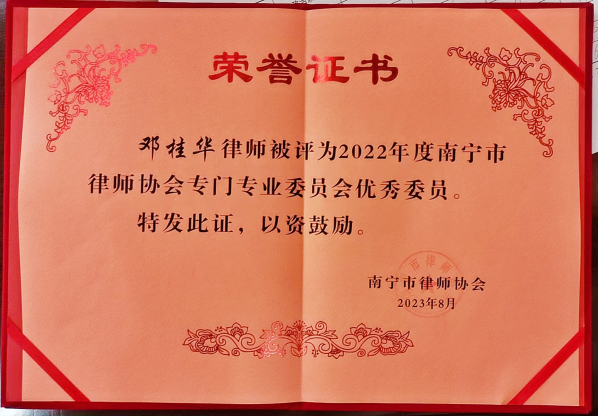 荣誉证书
邓桂华律师被评为2022年度南宁市
律师协会专门专业委员会优秀委员。
特发此证，以资鼓励。
南宁市律师协会
2023年8月